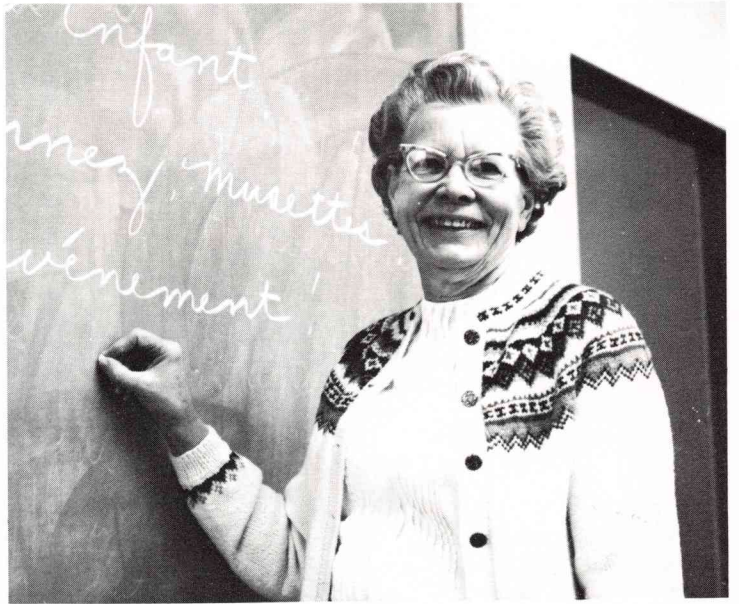 Enfant
nez, musettes
vénement!